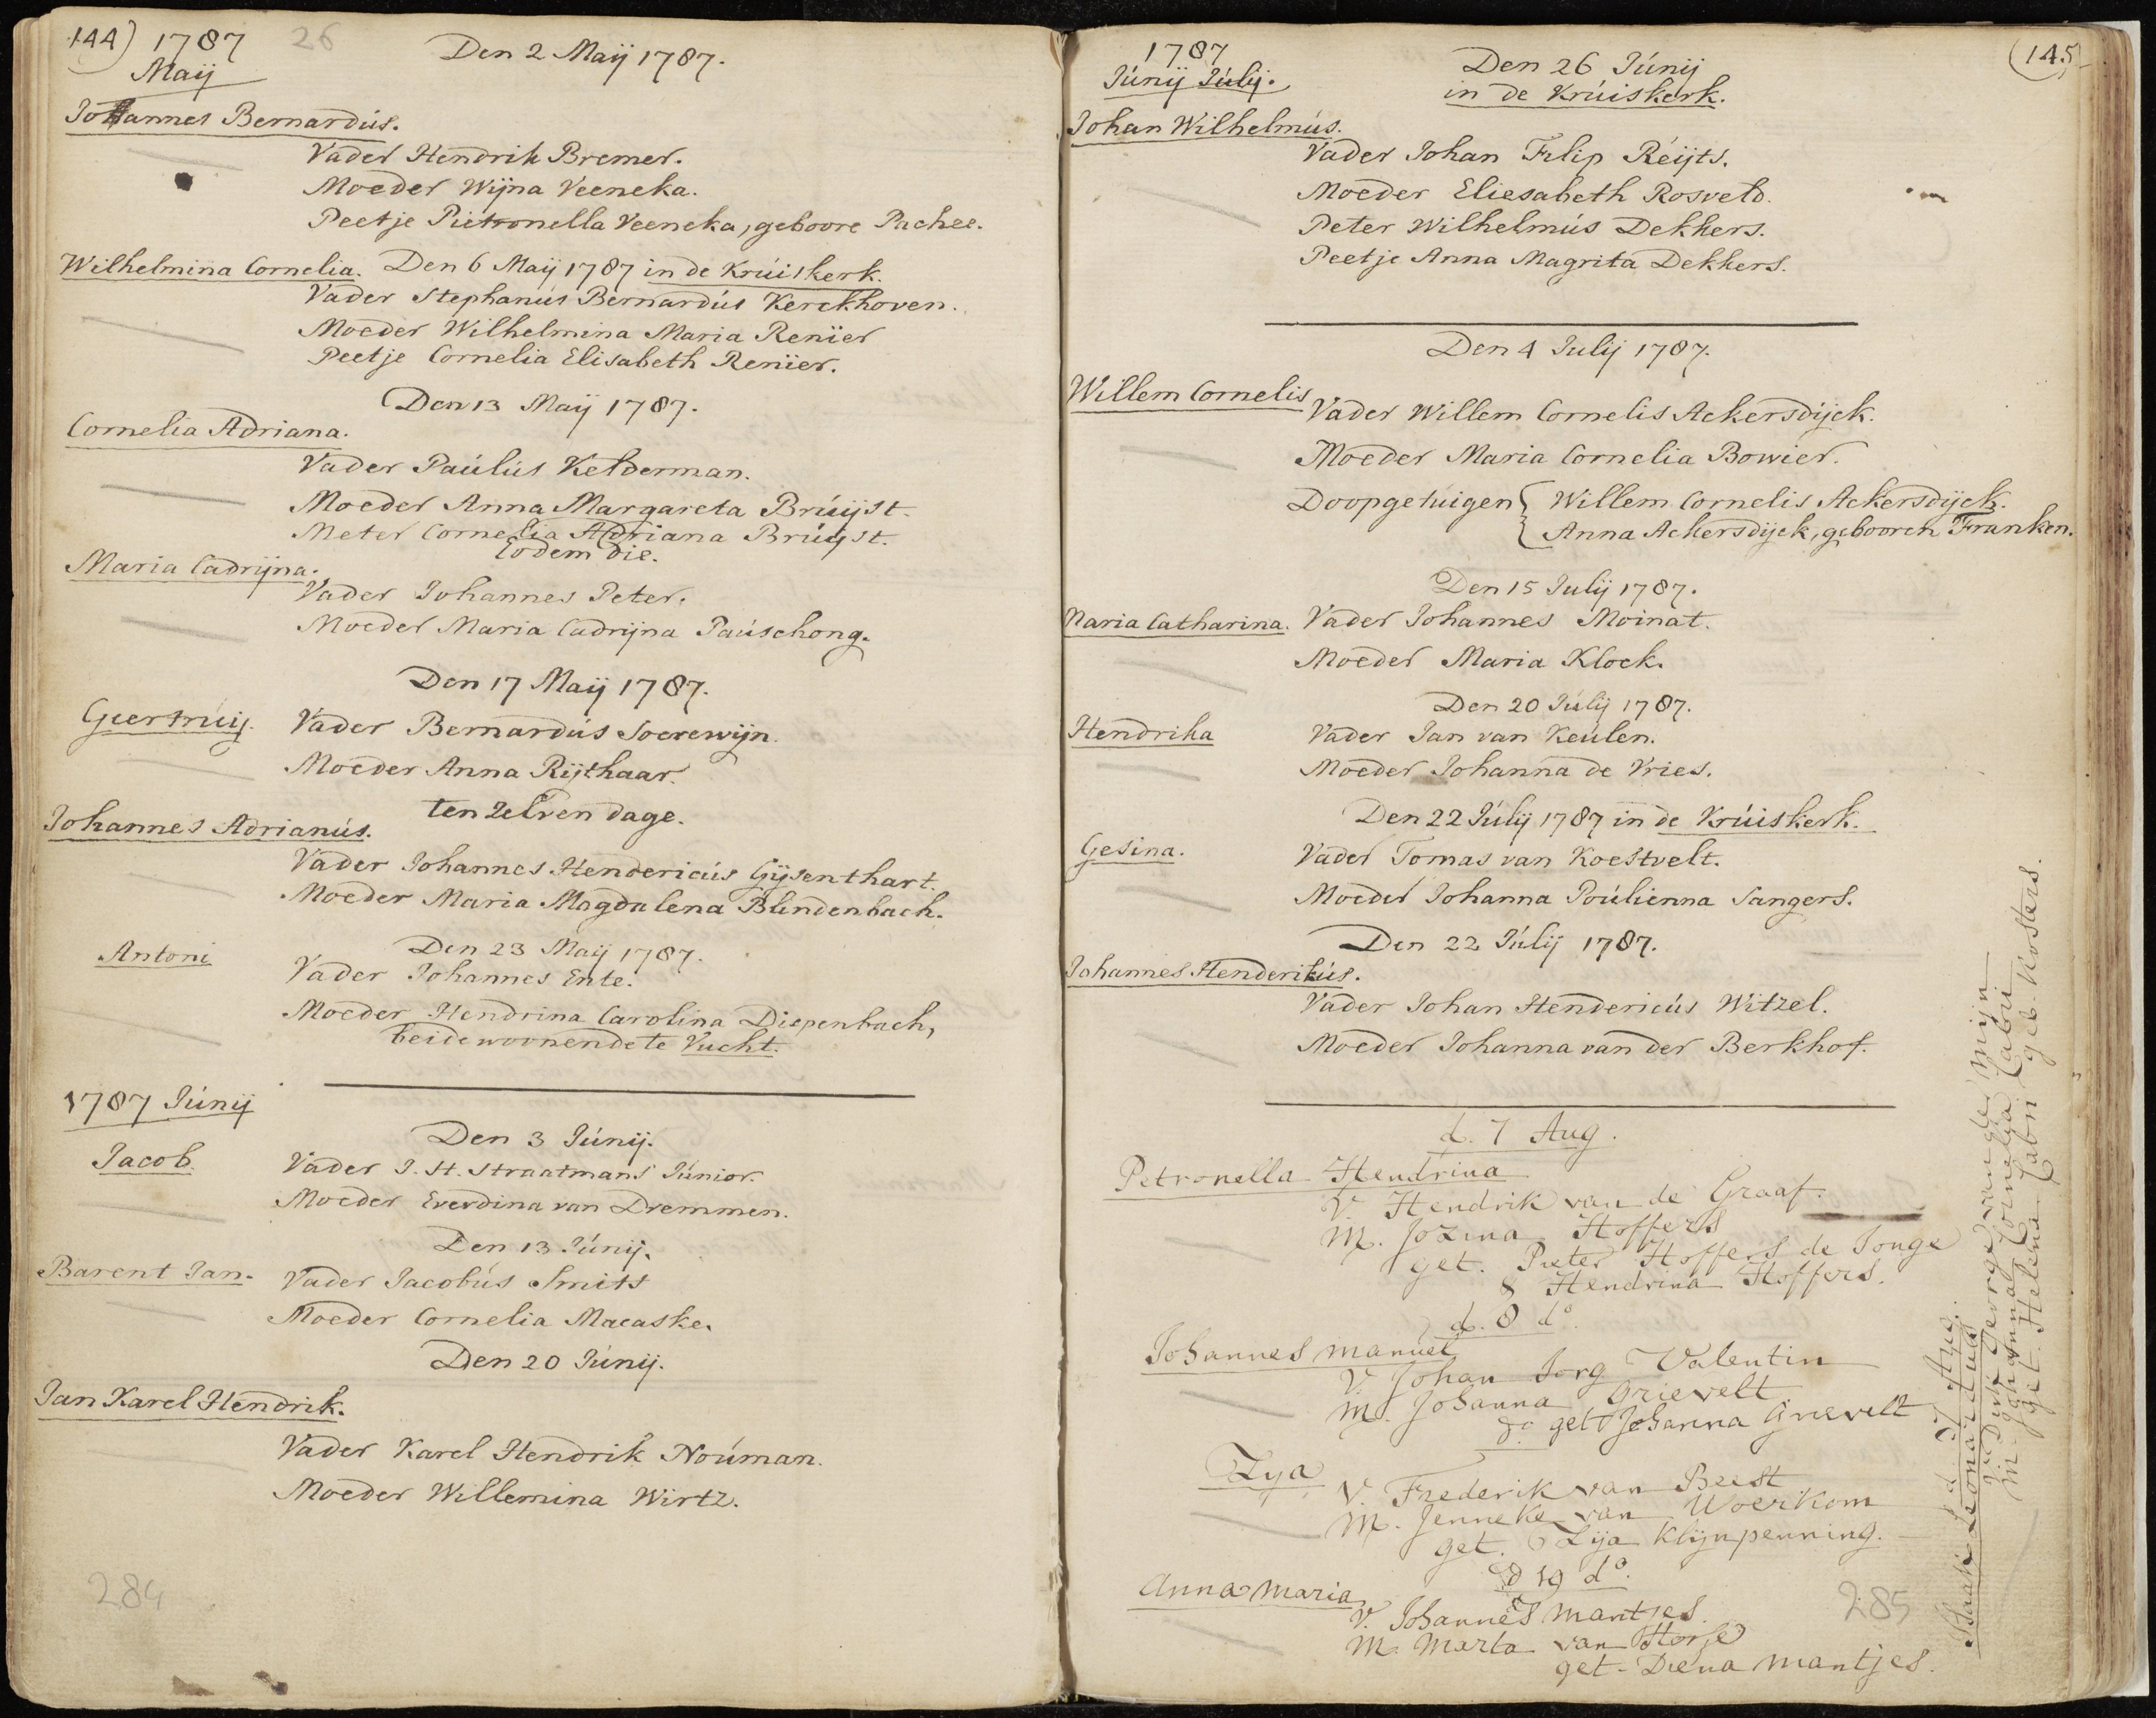 144) 1787 26
Maij
Den 2 Maij 1787.
Johannes Bernardús.
Vader Hendrik Bremer.
Moeder Wijna Veeneka.
Peetje Pietronella Veeneka, geboore Pachee.
Wilhelmina Cornelia. Den 6 Maij 1787 in de Krúiskerk.
Vader Stephanús Bernardús Kerckhoven.
Moeder Wilhelmina Maria Renier
Peetje Cornelia Elisabeth Renier.
Den 13 Maij 1787.
Cornelia Adriana.
Vader Paúlús Kelderman.
Moeder Anna Margareta Brúijst.
Meter Cornelia Adriana Brúijst.
Eodem die.
Maria Cadrijna.
Vader Johannes Peter.
Moeder Maria Cadrijna Paúschong.
Den 17 Maij 1787.
Geertrúij. Vader Bernardús Soerewijn.
Moeder Anna Rijthaar.
ten zelven dage.
Johannes Adrianús.
Vader Johannes Hendericús Gijsenthart.
Moeder Maria Magdalena Blindenbach.
Den 23 Maij 1787.
Antoni Vader Johannes Ente.
Moeder Hendrina Carolina Diepenbach,
beide woonende te Vucht.
1787 Júnij
Den 3 Júnij.
Jacob. Vader J. H. Straatmans Júnior.
Moeder Everdina van Dremmen.
Den 13 Júnij.
Barent Jan. Vader Jacobús Smits
Moeder Cornelia Macaske.
Den 20 Júnij.
Jan Karel Hendrik.
Vader Karel Hendrik Noúman.
Moeder Willemina Wirtz.
284
1787
Júnij Júlij.
(145)
Den 26 Júnij
in de Krúiskerk.
Johan Wilhelmús.
Vader Johan Filip Réijts.
Moeder Eliesabeth Rosveld.
Peter Wilhelmús Dekkers.
Peetje Anna Magrita Dekkers.
Den 4 Julij 1787.
Willem Cornelis Vader Willem Cornelis Ackersdijck.
Moeder Maria Cornelia Bowier.
Doopgetuigen { Willem Cornelis Ackersdijck.
Anna Ackersdijck, gebooren Franken.
Den 15 Julij 1787.
Maria Catharina. Vader Johannes Moinat.
Moeder Maria Klock.
Den 20 Júlij 1787.
Hendrika Vader Jan van Keúlen.
Moeder Johanna de Vries.
Den 22 Júlij 1787 in de Krúiskerk.
Gesina. Vader Tomas van Koestvelt.
Moeder Johanna Poúlienna Sangers.
Den 22 Júlij 1787.
Johannes Henderikús.
Vader Johan Hendericús Witzel.
Moeder Johanna van der Berkhof.
d. 7 Aug.
Petronella Hendrina
V. Hendrik van de Graaf.
M. Jozina Hoffers
get. Pieter Hoffers de Jonge
& Hendrina Hoffers.
d. 8 do.
Johannes Manuel
V. Johan Jorg Valentin
M. Johanna Grievelt
get Johanna Grievelt
Zya
V. Frederik van Beest
M. Jenneke van Woerkom
get. Zija Klijnpenning.
d 19 do.
Anna Maria
V. Johannes Mantjes.
M. Marta van Horse
get. Diena Mantjes.
285
d. 27 Aug.
Isaak Leonardus
V. Dirk Gerrge van der Mijn
M. Johanna Cornelia Cabri
get. Helena Cabri geb. Kosters.